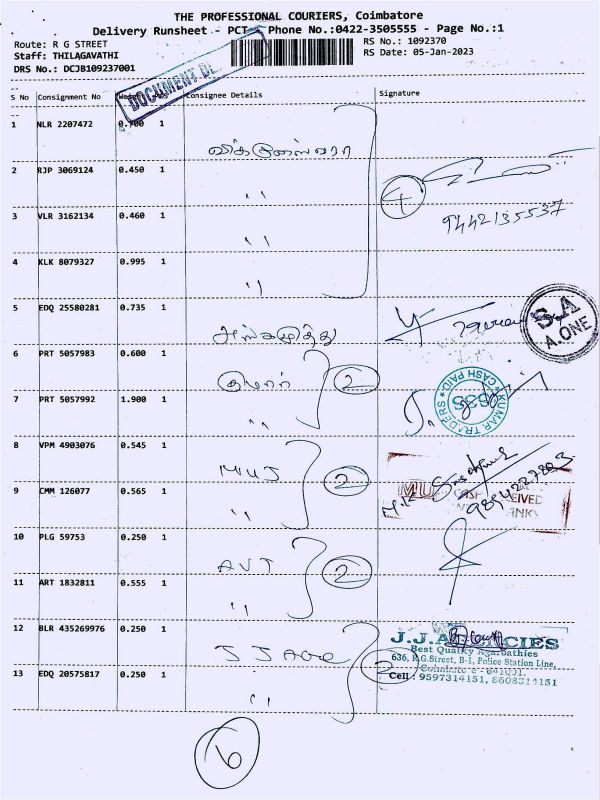 THE PROFESSIONAL COURIERS, Coimbatore
Delivery Runsheet - PCT - Phone No.:0422-3505555 - Page No.:1
Route: R G STREET
RS No.: 1092370
Staff: THILAGAVATHI
RS Date: 05-Jan-2023
DRS No.: DCJB109237001
DOCUMENT DE
S No Consignment No Consignee Details Signature
1 NLR 2207472 0.700 1
விக்னேஸ்வரா
2 RJP 3069124 0.450 1 ,,
4
3 VLR 3162134 0.460 1 ,,
9442135537
4 KLK 8079327 0.995 1 ,,
5 EDQ 25580281 0.735 1
S.A
A.ONE
6 PRT 5057983 0.600 1 குமார் 2
7 PRT 5057992 1.900 1 ,,
KUMAR TRADERS
CASH PAID
8 VPM 4903076 0.545 1 MUJ 2
9 CMM 126077 0.565 1 ,,
10 PLG 59753 0.250 1
AVT 2
11 ART 1832811 0.555 1 ,,
12 BLR 435269976 0.250 1 J J Age 2
J.J.AGENCIES
Best Quality Agarbathies
636, R.G.Street, B-1, Police Station Line,
Coimbatore - 641001.
Cell : 9597314151, 8608314151
13 EDQ 20575817 0.250 1 ,,
6